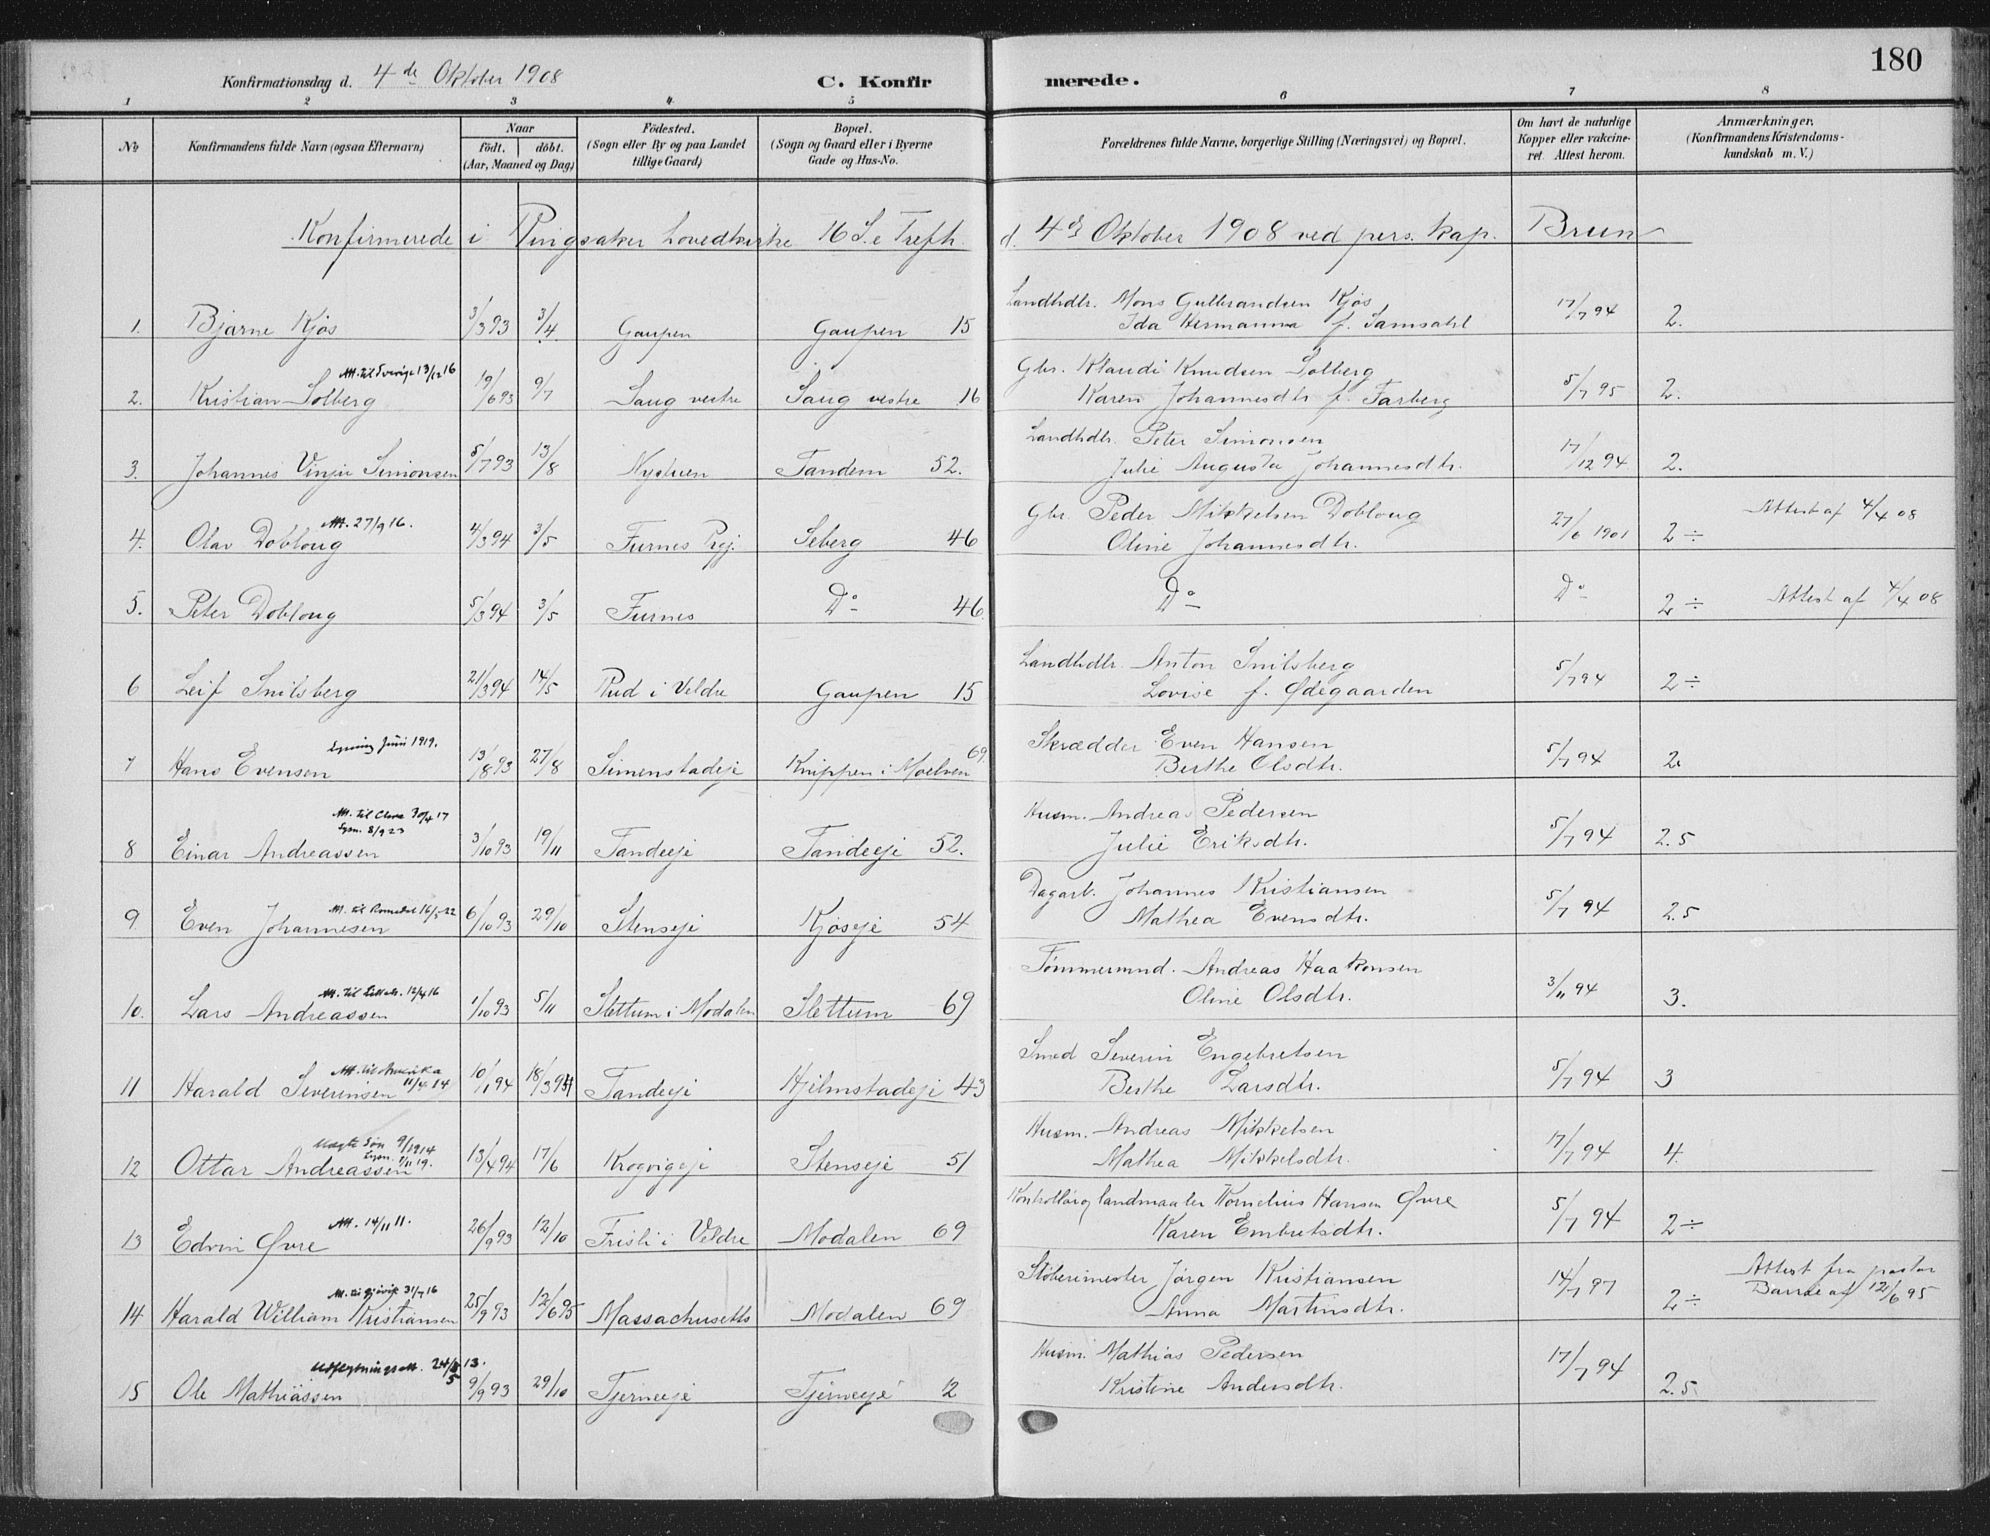 180
Konfirmationsdag d. 4de Oktober 1908 C. Konfirmerede.
1 2 3 4. 5 6 7 8
No Konfirmandens fulde Navn (ogsaa Efternavn) Naar født. døbt. (Aar, Maaned og Dag) Fødested. (Sogn eller By og paa Landet tillige Gaard) Bopæl. (Sogn og Gaard eller i Byerne Gade og Hus-No. Forældrenes fulde Navne, borgerlige Stilling (Næringsvei) og Bopæl. Om havt de naturlige Kopper eller vakcineret. Attest herom. Anmærkninger. (Konfirmandens Kristendomskundskab m. V.)
Konfirmerede i Ringsaker hovedkirke 16 S. e Trefh. d. 4de Oktober 1908 ved pers. kap. Brun
1. Bjarne Kjøs 3/3 93 3/4 Gaupen Gaupen 15 Landhdlr. Mons Gulbrandsen Kjøs 17/7 94 2.
Ida Hermanna f. Samsahl
Att. til Sverige 13/12 16
2. Kristian Solberg 19/6 93 9/7 Saug vestre Saug vestre 16 Gbr. Klaudi Knudsen Solberg 5/7 95 2.
Karen Johannesdtr f. Farberg
3. Johannes Vinju Simonsen 5/7 93 13/8 Nystuen Tandem 52. Landhdlr. Peter Simonsen 17/12 94 2.
Julie Augusta Johannesdtr.
Att. 27/9 16.
4. Olav Dobloug 4/3 94 3/5 Furnes Prgj. Seberg 46 Gbr. Peder Mikkelsen Dobloug 27/6 1901 2 ÷ Attest af 4/4 08
Oline Johannesdtr.
5. Peter Dobloug 5/3 94 3/5 Furnes Do 46 Do Do 2 ÷ Attest af 4/4 08
6 Leif Snilsberg 21/3 94 14/5 Rud i Veldre Gaupen 15 Landhdlr. Anton Snilsberg 5/7 94 2 ÷
Lovise f. Ødegaarden
Lysning Juni 1919.
7 Hans Evensen 13/8 93 27/8 Simenstadeje Knippen i Moelven 69 Skrædder Even Hansen 5/7 94 2
Berthe Olsdtr.
Att. til Clava 30/4 17
Lysn. 8/9 23
8 Einar Andreassen 3/10 93 19/11 Tandeeje Tandeeje 52. Husm. Andreas Pedersen 5/7 94 2.5
Julie Eriksdtr.
Att. til Romedal 16/5 22
9 Even Johannesen 6/10 93 29/10 Stenseje Kjøseje 54 Dagarb. Johannes Kristiansen 5/7 94 2.5
Mathea Evensdtr.
Att. til Lilleh. 12/4 16
10. Lars Andreassen 1/10 93 5/11 Slettum i Modalen Slettum 69 Tømmermnd. Andreas Haakonsen 3/11 94 3.
Oline Olsdtr.
Att. til Amerika 11/4. 14
11 Harald Severinsen 10/1 94 18/3 94 Tandeeje Hjelmstadeje 43 Smed Severin Engebretsen 5/7 94 3
Berthe Larsdtr.
Uægte Søn 9/1914
Lysn. 1/11 19.
12 Ottar Andreassen 13/4 94 17/6 Krogvigeje Stenseje 51 Husm. Andreas Mikkelsen 17/7 94 4.
Mathea Mikkelsdtr.
Att. 14/11 11.
13 Edvin Øvre 26/9 93 12/10 Frisli i Veldre Modalen 69 Kontrollør og landmaaler Kornelius Hansen Øvre 5/7 94 2 ÷
Karen Embretsdtr.
Att. til Gjøvik 31/7 16
14 Harald William Kristiansen 25/9 93 12/6 95 Massachusetts Modalen 69 Støberimester Jørgen Kristiansen 14/7 97 2 ÷ Attest fra pastor
Anna Martinsdtr. af 12/6 95
Udflytningsatt. 24/5 13.
15 Ole Mathiassen 9/9 93 29/10 Tjerneeje Tjerneeje 12 Husm. Mathias Pedersen 17/7 94 2.5
Kristine Andersdtr.